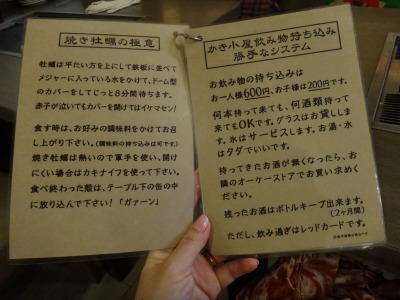 焼き牡蠣の極意
牡蠣は平たい方を上にして鉄板に並べて
メジャーに入っている水をかけて、ドーム型
のカバーをしてじっと8分間待ちます。
赤子が泣いてもカバーを開けてはイケマセン!
食す時は、お好みの調味料をかけてお召
し上がり下さい。(調味料の持ち込みは可です)
焼き牡蠣は熱いので軍手を使い、開けに
くい場合はカキナイフを使って下さい。
食べ終わった殻は、テーブル下の缶の中
に放り込んで下さい! 「ガァーン」
かき小屋飲み物持ち込み
勝手なシステム
お飲み物の持ち込みは
お一人様600円、お子様は200円です。
何本持って来ても、何酒類持って
来てもOKです。グラスはお貸しし
ます。氷はサービスします。お湯・水
はタダでいいです。
持ってきたお酒が無くなったら、お
隣のオーケーストアでお買い求めく
ださい。
残ったお酒はボトルキープ出来ます。
(2ヶ月間)
ただし、飲み過ぎはレッドカードです。